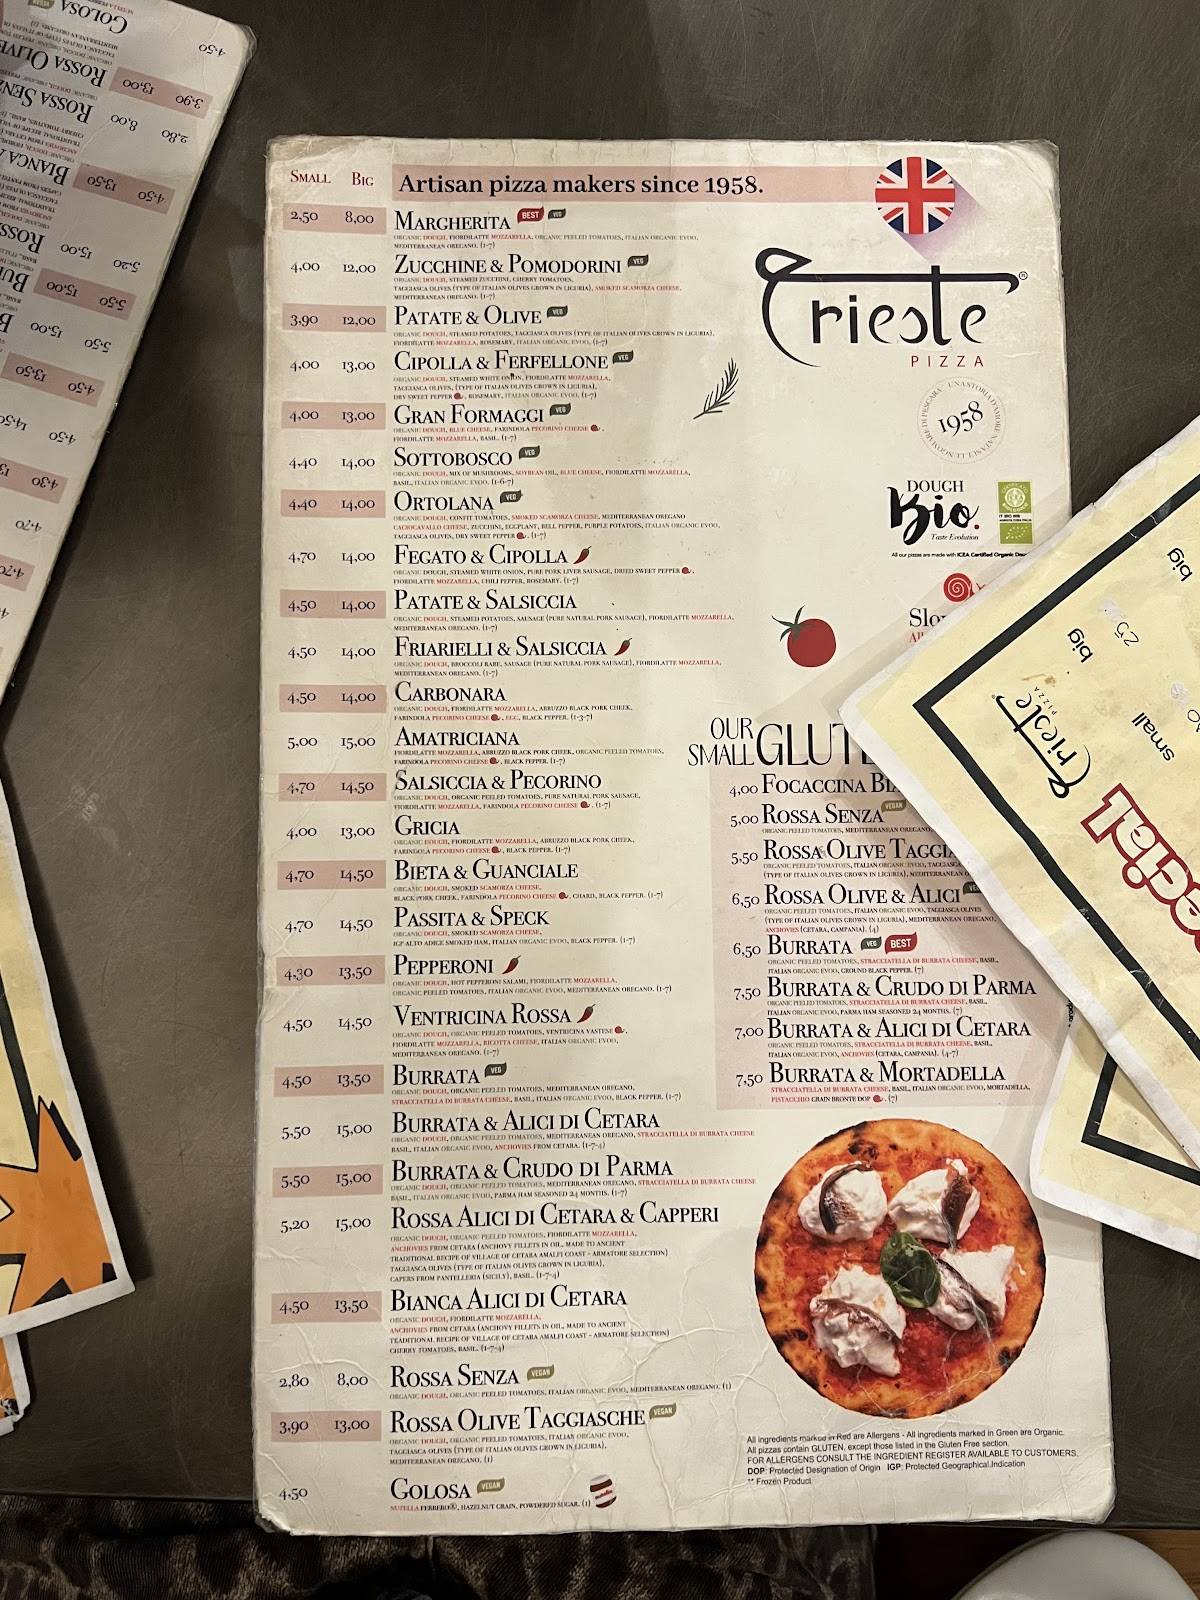 SMALL BIG Artisan pizza makers since 1958.
2,50 8,00 MARGHERITA BEST VEG
ORGANIC DOUGH, FIORDILATTE MOZZARELLA, ORGANIC PEELED TOMATOES, ITALIAN ORGANIC EVOO,
MEDITERRANEAN OREGANO. (1-7)
4,00 12,00 ZUCCHINE & POMODORINI VEG
ORGANIC DOUGH, STEAMED ZUCCHINI, CHERRY TOMATOES,
TAGGIASCA OLIVES (TYPE OF ITALIAN OLIVES GROWN IN LIGURIA), SMOKED SCAMORZA CHEESE,
MEDITERRANEAN OREGANO. (1-7)
3,90 12,00 PATATE & OLIVE VEG
ORGANIC DOUGH, STEAMED POTATOES, TAGGIASCA OLIVES (TYPE OF ITALIAN OLIVES GROWN IN LIGURIA),
FIORDILATTE MOZZARELLA, ROSEMARY, ITALIAN ORGANIC EVOO. (1-7)
4,00 13,00 CIPOLLA & FERFELLONE VEG
ORGANIC DOUGH, STEAMED WHITE ONION, FIORDILATTE MOZZARELLA,
TAGGIASCA OLIVES, (TYPE OF ITALIAN OLIVES GROWN IN LIGURIA),
DRY SWEET PEPPER, ROSEMARY, ITALIAN ORGANIC EVOO. (1-7)
4,00 13,00 GRAN FORMAGGI VEG
ORGANIC DOUGH, BLUE CHEESE, FARINDOLA PECORINO CHEESE,
FIORDILATTE MOZZARELLA, BASIL. (1-7)
4,40 14,00 SOTTOBOSCO VEG
ORGANIC DOUGH, MIX OF MUSHROOMS, SOYBEAN OIL, BLUE CHEESE, FIORDILATTE MOZZARELLA,
BASIL, ITALIAN ORGANIC EVOO. (1-6-7)
4,40 14,00 ORTOLANA VEG
ORGANIC DOUGH, CONFIT TOMATOES, SMOKED SCAMORZA CHEESE, MEDITERRANEAN OREGANO
CACIOCAVALLO CHEESE, ZUCCHINI, EGGPLANT, BELL PEPPER, PURPLE POTATOES, ITALIAN ORGANIC EVOO,
TAGGIASCA OLIVES, DRY SWEET PEPPER. (1-7)
4,70 14,00 FEGATO & CIPOLLA
ORGANIC DOUGH, STEAMED WHITE ONION, PURE PORK LIVER SAUSAGE, DRIED SWEET PEPPER,
FIORDILATTE MOZZARELLA, CHILI PEPPER, ROSEMARY. (1-7)
4,50 14,00 PATATE & SALSICCIA
ORGANIC DOUGH, STEAMED POTATOES, SAUSAGE (PURE NATURAL PORK SAUSAGE), FIORDILATTE MOZZARELLA,
MEDITERRANEAN OREGANO. (1-7)
4,50 14,00 FRIARIELLI & SALSICCIA
ORGANIC DOUGH, BROCCOLI RABE, SAUSAGE (PURE NATURAL PORK SAUSAGE), FIORDILATTE MOZZARELLA,
MEDITERRANEAN OREGANO. (1-7)
4,50 14,00 CARBONARA
ORGANIC DOUGH, FIORDILATTE MOZZARELLA, ABRUZZO BLACK PORK CHEEK,
FARINDOLA PECORINO CHEESE, EGG, BLACK PEPPER. (1-3-7)
5,00 15,00 AMATRICIANA
FIORDILATTE MOZZARELLA, ABRUZZO BLACK PORK CHEEK, ORGANIC PEELED TOMATOES,
FARINDOLA PECORINO CHEESE, BLACK PEPPER. (1-7)
4,70 14,50 SALSICCIA & PECORINO
ORGANIC DOUGH, ORGANIC PEELED TOMATOES, PURE NATURAL PORK SAUSAGE,
FIORDILATTE MOZZARELLA, FARINDOLA PECORINO CHEESE. (1-7)
4,00 13,00 GRICIA
ORGANIC DOUGH, FIORDILATTE MOZZARELLA, ABRUZZO BLACK PORK CHEEK,
FARINDOLA PECORINO CHEESE, BLACK PEPPER. (1-7)
4,70 14,50 BIETA & GUANCIALE
ORGANIC DOUGH, SMOKED SCAMORZA CHEESE,
BLACK PORK CHEEK, FARINDOLA PECORINO CHEESE, CHARD, BLACK PEPPER. (1-7)
4,70 14,50 PASSITA & SPECK
ORGANIC DOUGH, SMOKED SCAMORZA CHEESE,
IGP ALTO ADIGE SMOKED HAM, ITALIAN ORGANIC EVOO, BLACK PEPPER. (1-7)
4,30 13,50 PEPPERONI
ORGANIC DOUGH, HOT PEPPERONI SALAMI, FIORDILATTE MOZZARELLA,
ORGANIC PEELED TOMATOES, ITALIAN ORGANIC EVOO, MEDITERRANEAN OREGANO. (1-7)
4,50 14,50 VENTRICINA ROSSA
ORGANIC DOUGH, ORGANIC PEELED TOMATOES, VENTRICINA VASTESE,
FIORDILATTE MOZZARELLA, RICOTTA CHEESE, ITALIAN ORGANIC EVOO,
MEDITERRANEAN OREGANO. (1-7)
4,50 13,50 BURRATA VEG
ORGANIC DOUGH, ORGANIC PEELED TOMATOES, MEDITERRANEAN OREGANO,
STRACCIATELLA DI BURRATA CHEESE, BASIL, ITALIAN ORGANIC EVOO, BLACK PEPPER. (1-7)
5,50 15,00 BURRATA & ALICI DI CETARA
ORGANIC DOUGH, ORGANIC PEELED TOMATOES, MEDITERRANEAN OREGANO, STRACCIATELLA DI BURRATA CHEESE
BASIL, ITALIAN ORGANIC EVOO, ANCHOVIES FROM CETARA. (1-7-4)
5,50 15,00 BURRATA & CRUDO DI PARMA
ORGANIC DOUGH, ORGANIC PEELED TOMATOES, MEDITERRANEAN OREGANO, STRACCIATELLA DI BURRATA CHEESE
BASIL, ITALIAN ORGANIC EVOO, PARMA HAM SEASONED 24 MONTHS. (1-7)
5,20 15,00 ROSSA ALICI DI CETARA & CAPPERI
ORGANIC DOUGH, ORGANIC PEELED TOMATOES, FIORDILATTE MOZZARELLA,
ANCHOVIES FROM CETARA (ANCHOVY FILLETS IN OIL, MADE TO ANCIENT
TRADITIONAL RECIPE OF VILLAGE OF CETARA AMALFI COAST - ARMATORE SELECTION)
TAGGIASCA OLIVES (TYPE OF ITALIAN OLIVES GROWN IN LIGURIA),
CAPERS FROM PANTELLERIA (SICILY), BASIL. (1-7-4)
4,50 13,50 BIANCA ALICI DI CETARA
ORGANIC DOUGH, FIORDILATTE MOZZARELLA,
ANCHOVIES FROM CETARA (ANCHOVY FILLETS IN OIL, MADE TO ANCIENT
TRADITIONAL RECIPE OF VILLAGE OF CETARA AMALFI COAST - ARMATORE SELECTION)
CHERRY TOMATOES, BASIL. (1-7-4)
2,80 8,00 ROSSA SENZA VEGAN
ORGANIC DOUGH, ORGANIC PEELED TOMATOES, ITALIAN ORGANIC EVOO, MEDITERRANEAN OREGANO. (1)
3,90 13,00 ROSSA OLIVE TAGGIASCHE VEGAN
ORGANIC DOUGH, ORGANIC PEELED TOMATOES, ITALIAN ORGANIC EVOO,
TAGGIASCA OLIVES (TYPE OF ITALIAN OLIVES GROWN IN LIGURIA),
MEDITERRANEAN OREGANO. (1)
4,50 GOLOSA VEGAN
NUTELLA FERRERO®, HAZELNUT GRAIN, POWDERED SUGAR. (1)
Trieste®
PIZZA
UNA STORIA D'AMORE NATA SUL LUNGOMARE DI PESCARA
1958
DOUGH
Bio.
Taste Evolution
All our pizzas are made with ICEA Certified Organic Dou
Slo
OUR
SMALL GLUT
4,00 FOCACCINA BIA
5,00 ROSSA SENZA VEGAN
ORGANIC PEELED TOMATOES, MEDITERRANEAN OREGANO
5,50 ROSSA OLIVE TAGGIA
ORGANIC PEELED TOMATOES, ITALIAN ORGANIC EVOO, TAGGIASCA
(TYPE OF ITALIAN OLIVES GROWN IN LIGURIA), MEDITERRANEAN O
6,50 ROSSA OLIVE & ALICI
ORGANIC PEELED TOMATOES, ITALIAN ORGANIC EVOO, TAGGIASCA OLIVES
(TYPE OF ITALIAN OLIVES GROWN IN LIGURIA), MEDITERRANEAN OREGANO,
ANCHOVIES (CETARA, CAMPANIA). (4)
6,50 BURRATA VEG BEST
ORGANIC PEELED TOMATOES, STRACCIATELLA DI BURRATA CHEESE, BASIL,
ITALIAN ORGANIC EVOO, GROUND BLACK PEPPER. (7)
7,50 BURRATA & CRUDO DI PARMA
ORGANIC PEELED TOMATOES, STRACCIATELLA DI BURRATA CHEESE, BASIL,
ITALIAN ORGANIC EVOO, PARMA HAM SEASONED 24 MONTHS. (7)
7,00 BURRATA & ALICI DI CETARA
ORGANIC PEELED TOMATOES, STRACCIATELLA DI BURRATA CHEESE, BASIL,
ITALIAN ORGANIC EVOO, ANCHOVIES (CETARA, CAMPANIA). (4-7)
7,50 BURRATA & MORTADELLA
STRACCIATELLA DI BURRATA CHEESE, BASIL, ITALIAN ORGANIC EVOO, MORTADELLA,
PISTACCHIO GRAIN BRONTE DOP. (7)
All ingredients marked in Red are Allergens - All ingredients marked in Green are Organic.
All pizzas contain GLUTEN, except those listed in the Gluten Free section.
FOR ALLERGENS CONSULT THE INGREDIENT REGISTER AVAILABLE TO CUSTOMERS.
DOP: Protected Designation of Origin IGP: Protected Geographical Indication
** Frozen Product
big
big
25
small
Trieste
PIZZA
ecial
GOLOSA
4,50
ROSSA OLIVE
13,00 3,90
ROSSA SENZ
8,00 2,80
BIANCA A
13,50 4,50
ROSS
15,00 5,20
BUR
15,00 5,50
B
15,00 5,50
13,50 4,50
14,50 4,50
4,30
4,70
4,70